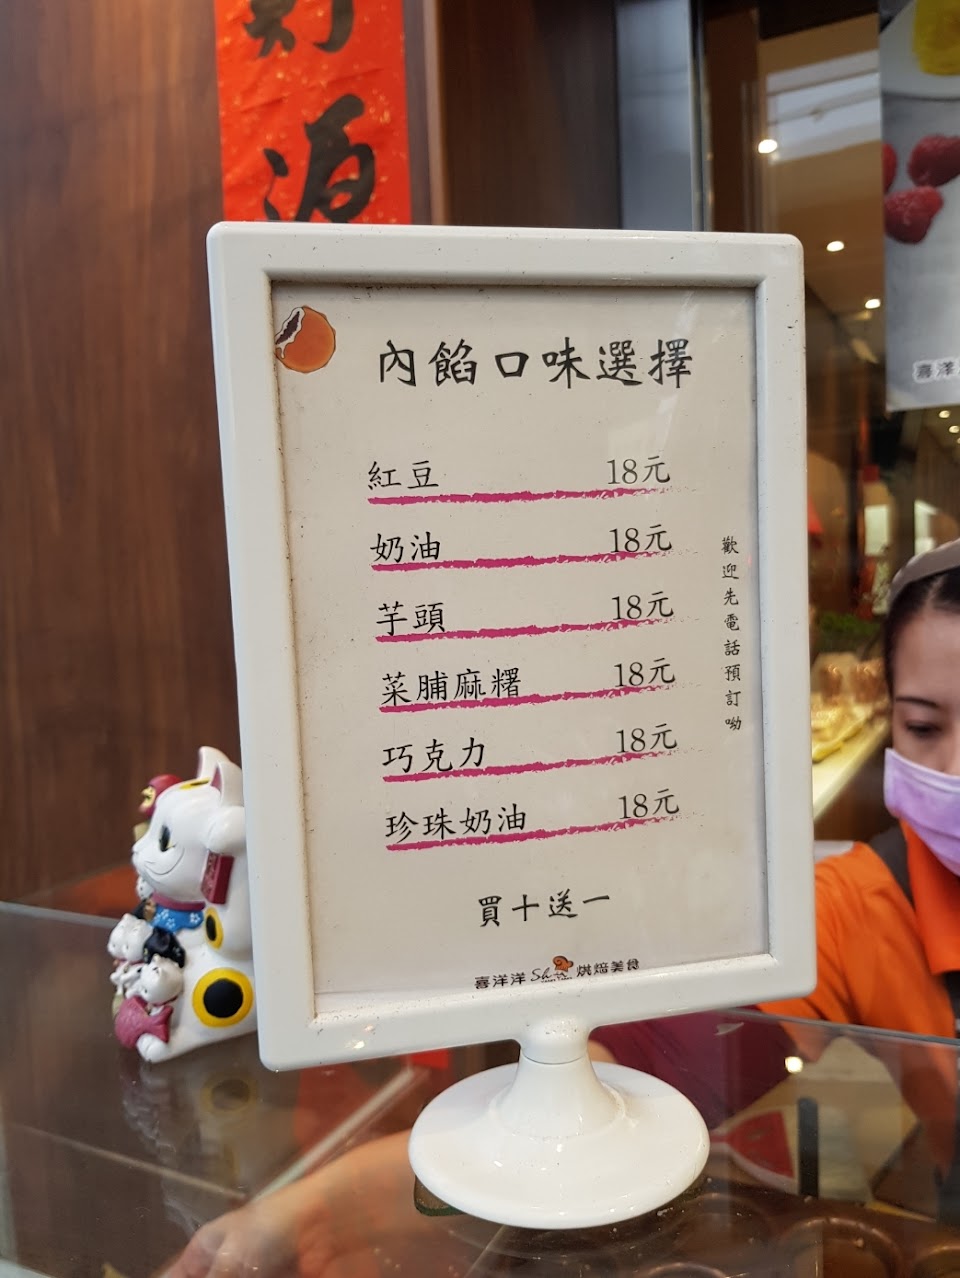 財
源
內餡口味選擇
紅豆 18元
奶油 18元
芋頭 18元
菜脯麻糬 18元
巧克力 18元
珍珠奶油 18元
歡迎先電話預訂呦
買十送一
喜洋洋 烘焙美食
喜洋